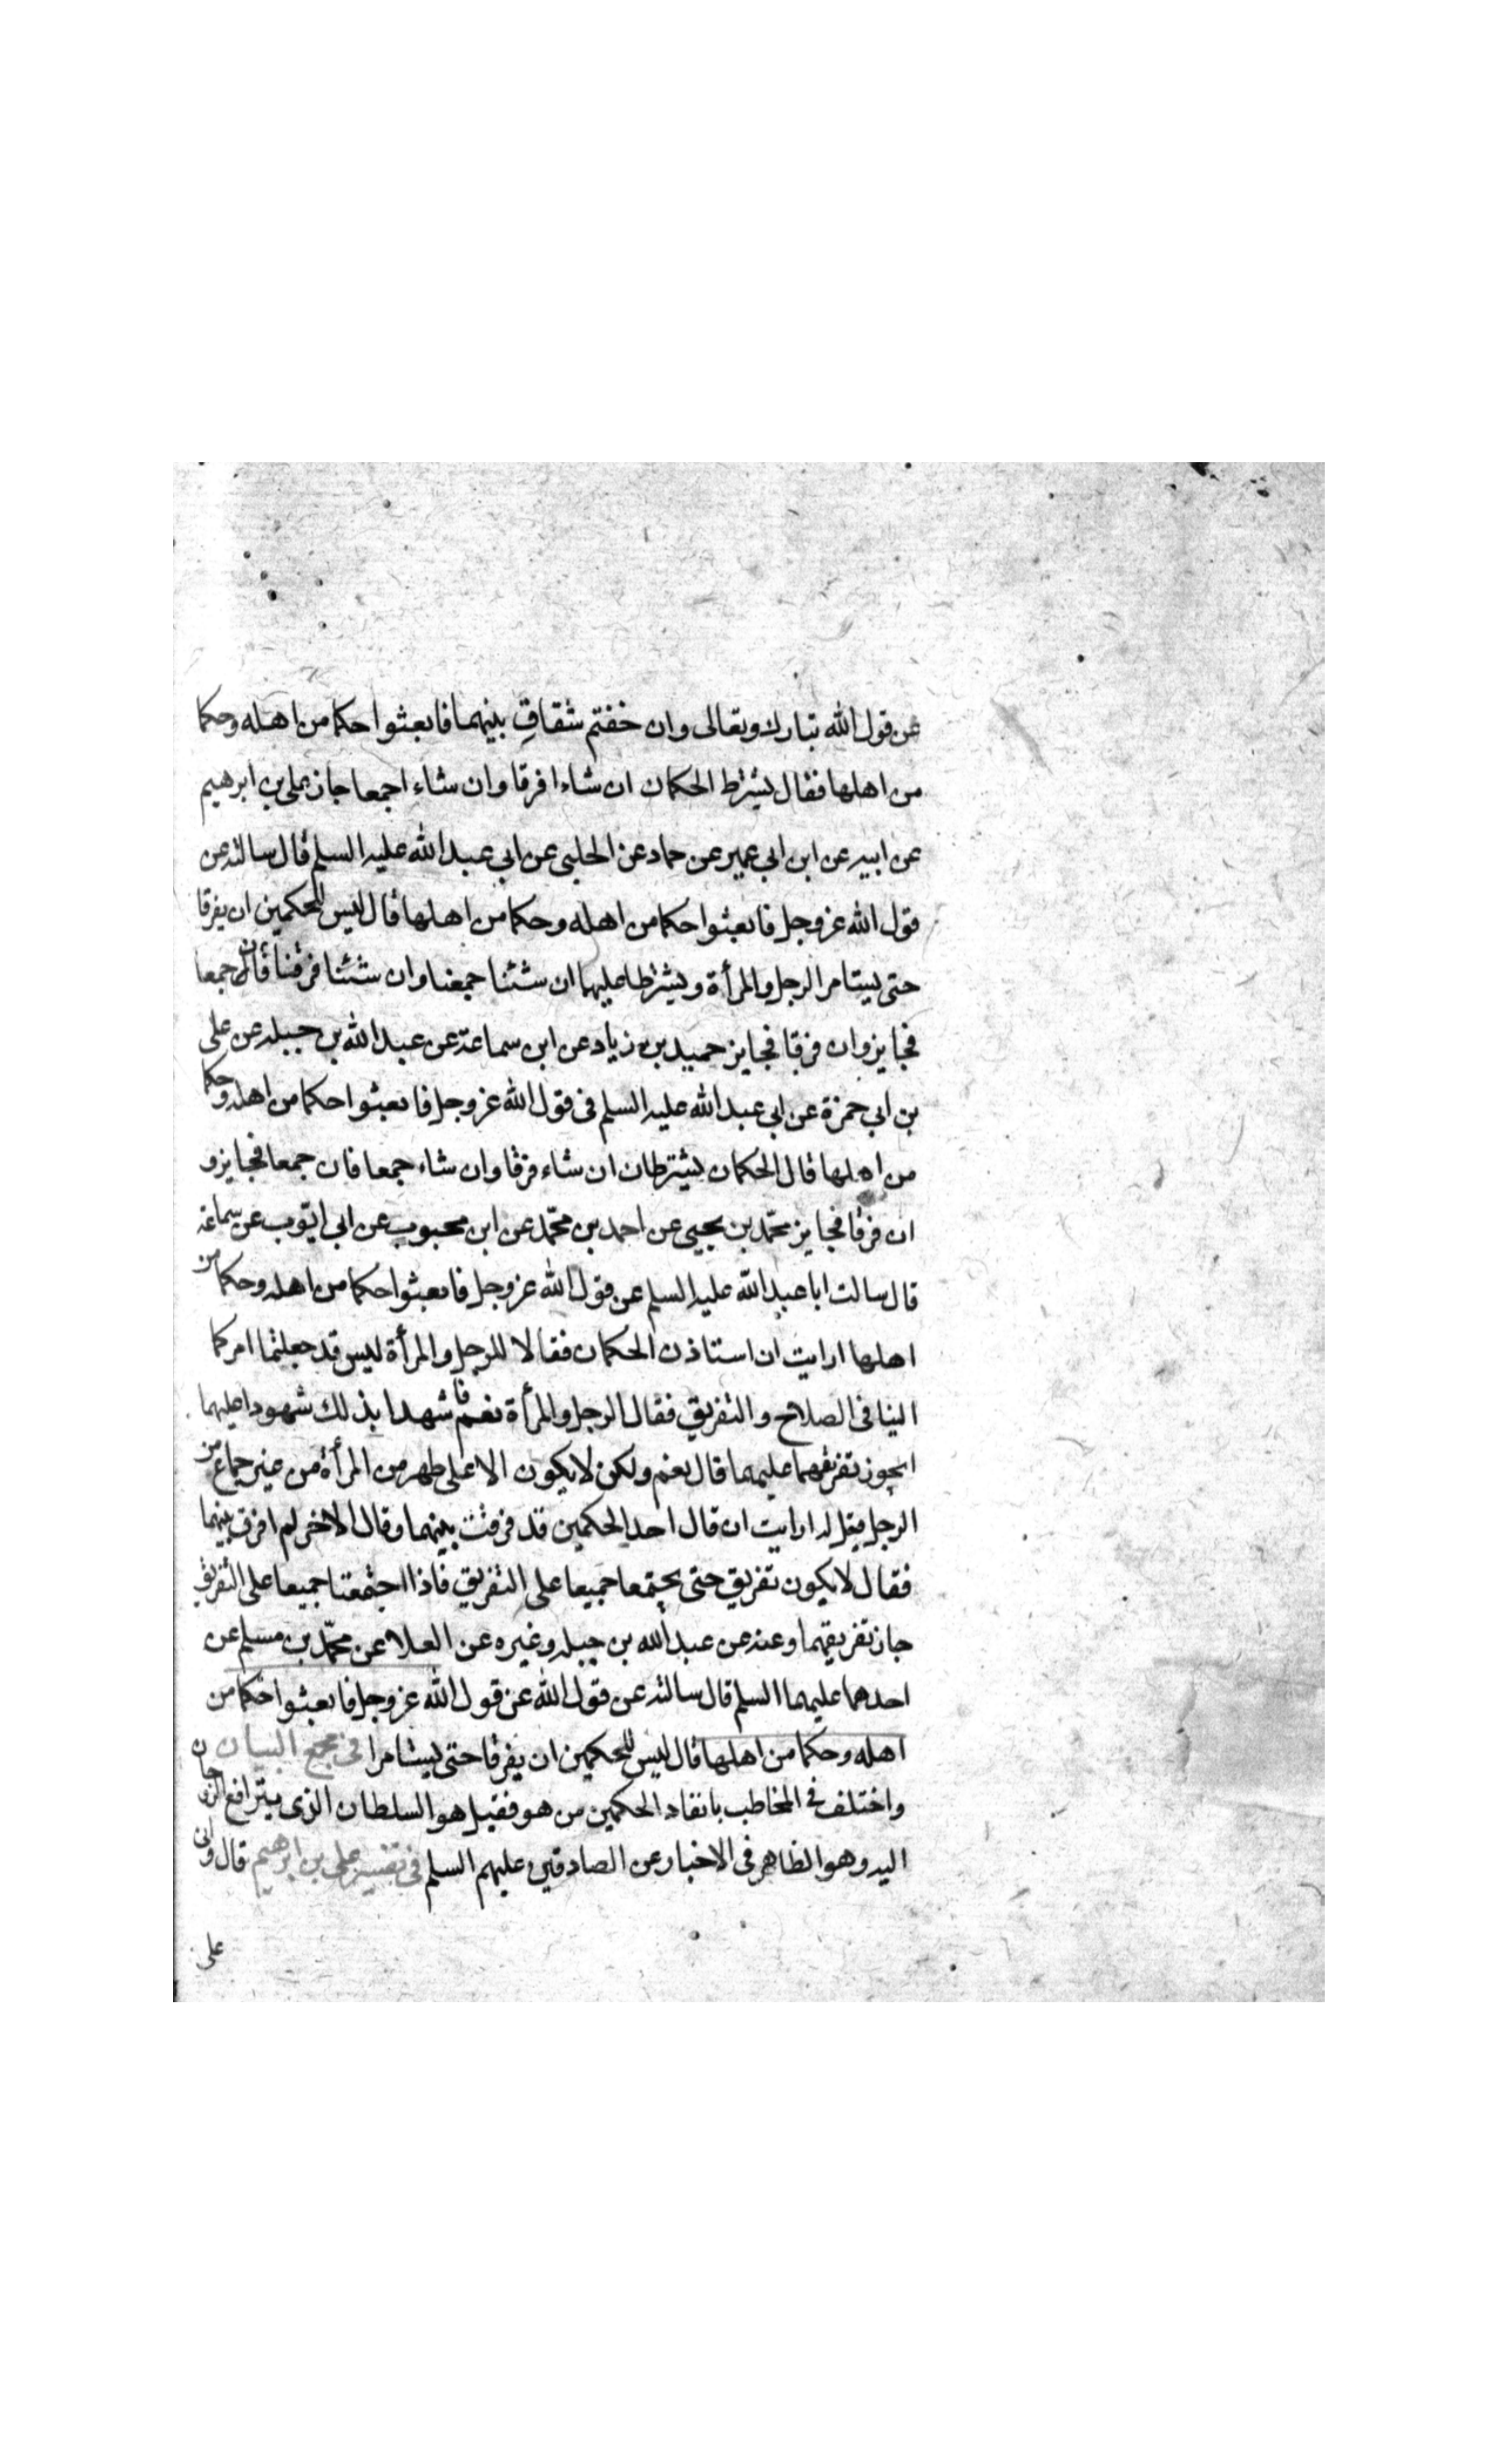 عن قول الله تبارك وتعالى وان خفتم شقاق بينهما فابعثوا حكما من اهله وحكما
من اهلها فقال يشترط الحكمان ان شاءا فرقا وان شاء اجمعا جاز علي بن ابرهيم
عن ابيه عن ابن ابي عمير عن حماد عن الحلبي عن ابي عبد الله عليه السلم قال سالته عن
قول الله عز وجل فابعثوا حكما من اهله وحكما من اهلها قال ليس للحكمين ان يفرقا
حتى يستامر الرجل والمرأة ويشترطا عليهما ان شئنا جمعنا وان شئنا فرقنا فان جمعا
فجايز وان فرقا فجايز حميد بن زياد عن ابن سماعة عن عبد الله بن جبله عن على
بن ابي حمزة عن ابي عبد الله عليه السلم فى قول الله عز وجل فابعثوا حكما من اهله وحكما
من اهلها قال الحكمان يشترطان ان شاء فرقا وان شاء جمعا فان جمعا فجايز و
ان فرقا فجايز محمد بن يحيى عن احمد بن محمد عن ابن محبوب عن ابي ايوب عن سماعة
قال سالت ابا عبد الله عليه السلم عن قول الله عز وجل فابعثوا حكما من اهله وحكما من
اهلها ارايت ان استاذن الحكمان فقالا للرجل والمرأة ليس قد جعلتما امركما
الينا فى الصلاح والتفريق فقال الرجل والمرأة نعم فاشهدا بذلك شهودا عليهما
ايجوز تفريقهما عليهما قال نعم ولكن لا يكون الا على طهر من المرأة من غير جماع من
الرجل فيقل له ارايت ان قال احد الحكمين قد فرقت بينهما وقال الاخر لم افرق بينهما
فقال لا يكون تفريق حتى يجتمعا جميعا على التفريق فاذا اجتمعتا جميعا على التفريق
جاز تفريقهما وعنه عن عبد الله بن جبله وغيره عن العلا عن محمد بن مسلم عن
احدهما عليهما السلم قال سالته عن قول الله عن قول الله عز وجل فابعثوا حكما من
اهله وحكما من اهلها قال ليس للحكمين ان يفرقا حتى يستامرا فى مجمع البيان
واختلف فى المخاطب بانفاد الحكمين من هو فقيل هو السلطان الذى يترافع الزوجان
اليه وهو الظاهر فى الاخبار عن الصادقين عليهم السلم فى تفسير على بن ابرهيم قال واتى
على